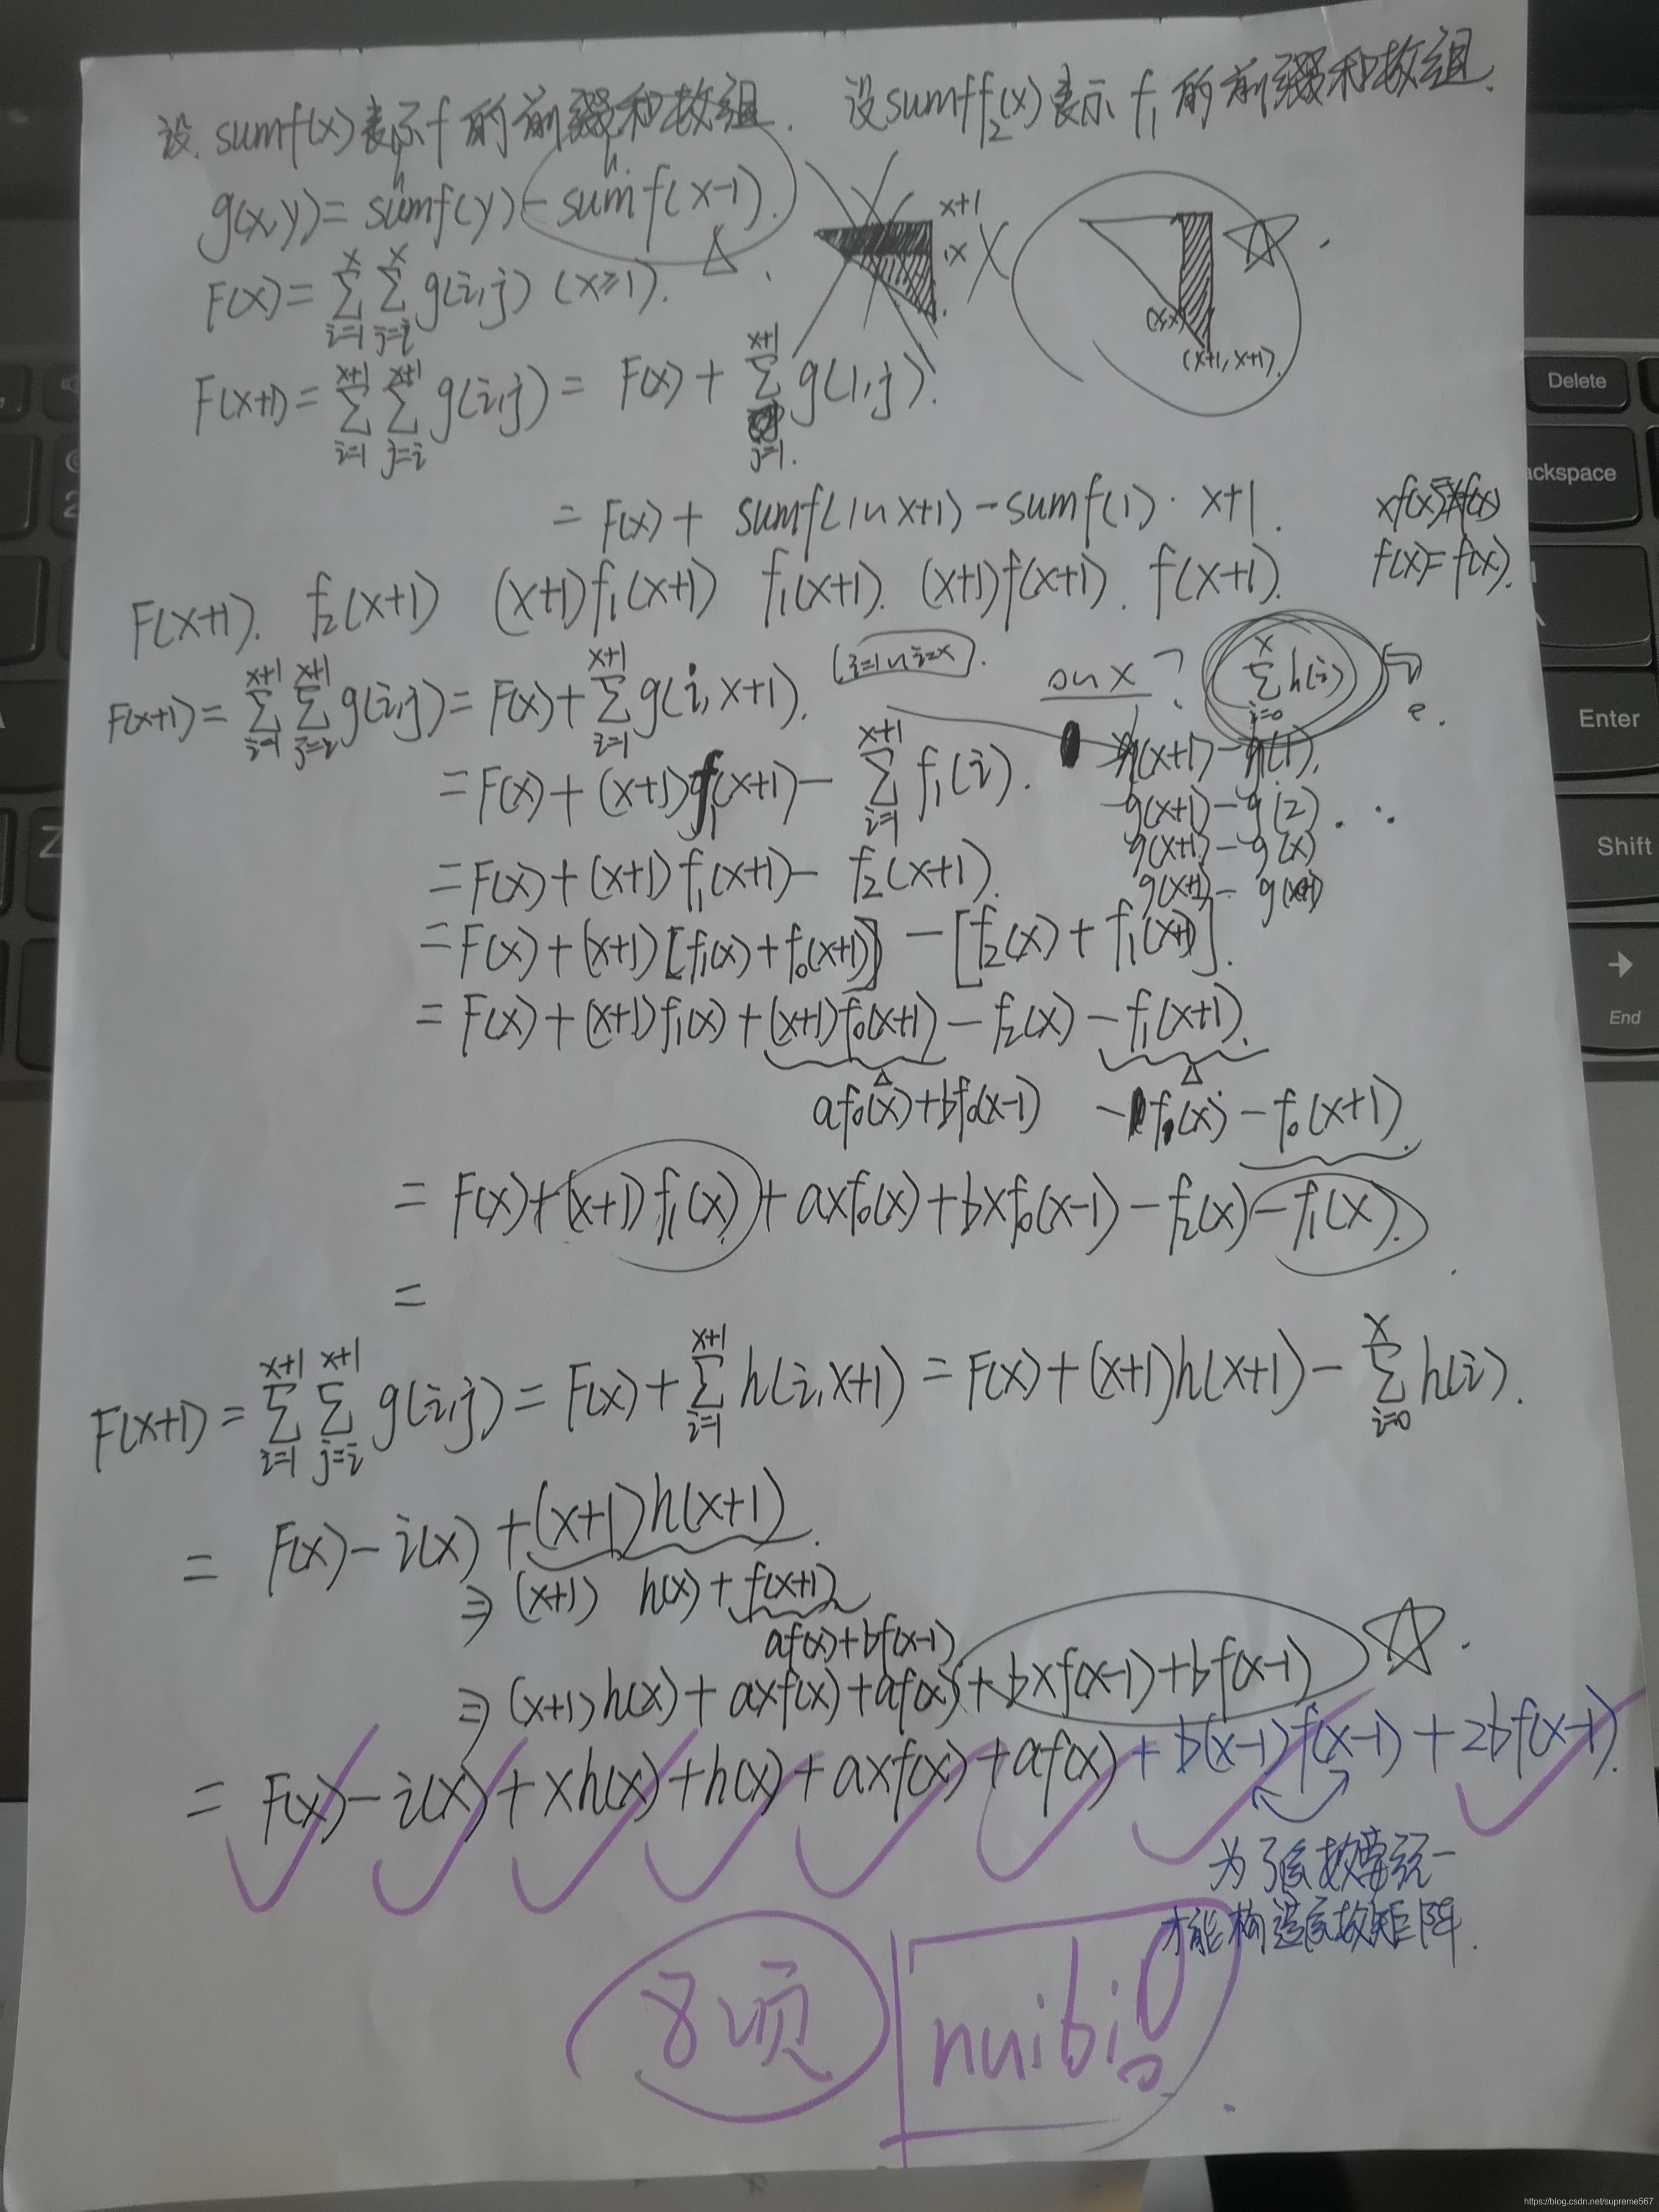 设 sumf(x)表示f的前缀和数组. 设sumff₂(x)表示f₁的前缀和数组.
h h
g(x,y)= sumf(y)-sumf(x-1).
Δ.
x+1
x
(x,x)
(x+1,x+1).
F(x)=∑_{i=1}^{x}∑_{j=i}^{x}g(i,j) (x≥1).
F(x+1)=∑_{i=1}^{x+1}∑_{j=i}^{x+1}g(i,j)= F(x)+∑_{j=1}^{x+1}g(1,j).
=F(x)+ sumf(1~x+1)-sumf(1)·x+1.
f(x)=f(x).
F(x+1). f₂(x+1) (x+1)f₁(x+1) f₁(x+1). (x+1)f(x+1). f(x+1).
(i=1~i=x).
? ∑_{i=0}^{x}h(i)
F(x+1)=∑_{i=1}^{x+1}∑_{j=i}^{x+1}g(i,j)=F(x)+∑_{i=1}^{x+1}g(i,x+1).
=F(x)+(x+1)f₁(x+1)-∑_{i=1}^{x+1}f₁(i).
g(x+1)-g(1).
g(x+1)-g(2).
g(x+1)-g(x)
g(x+1)-g(x+1)
=F(x)+(x+1)f₁(x+1)-f₂(x+1).
=F(x)+(x+1)[f₁(x)+f₀(x+1)]-[f₂(x)+f₁(x+1)].
=F(x)+(x+1)f₁(x)+(x+1)f₀(x+1)-f₂(x)-f₁(x+1).
Δ Δ
af₀(x)+bf₀(x-1) -f₁(x)-f₀(x+1).
=F(x)+(x+1)f₁(x)+axf₀(x)+bxf₀(x-1)-f₂(x)-f₁(x).
=
F(x+1)=∑_{i=1}^{x+1}∑_{j=i}^{x+1}g(i,j)=F(x)+∑_{i=1}^{x+1}h(i,x+1)=F(x)+(x+1)h(x+1)-∑_{i=0}^{x}h(i).
= F(x)-i(x)+(x+1)h(x+1).
⇒(x+1) h(x)+f(x+1)
af(x)+bf(x-1)
⇒(x+1)h(x)+axf(x)+af(x)+bxf(x-1)+bf(x-1)
= F(x)-i(x)+xh(x)+h(x)+axf(x)+af(x)+b(x-1)f(x-1)+2bf(x-1).
为了系数要统一
才能构造系数矩阵.
8项
nuibi
Delete
ackspace
Enter
Shift
End
2
Z
https://blog.csdn.net/supreme567